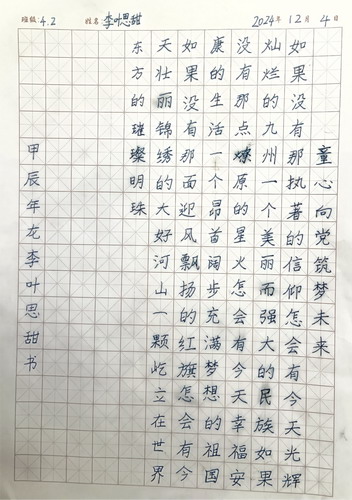 班级: 4.2 姓名 李叶思甜 2024年12月4日
童心向党筑梦未来
如果没有那执著的信仰怎会有今天光辉
灿烂的九州一个美丽而强大的民族如果
没有那点燎原的星火怎会有今天幸福安
康的生活一个昂首阔步充满梦想的祖国
如果没有那面迎风飘扬的红旗怎会有今
天壮丽锦绣的大好河山一颗屹立在世界
东方的璀璨明珠
甲辰年龙李叶思甜书